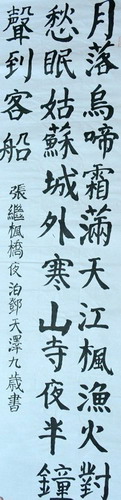 月落烏啼霜滿天江楓漁火對
愁眠姑蘇城外寒山寺夜半鐘
聲到客船
張繼楓橋夜泊鄧天澤九歲書